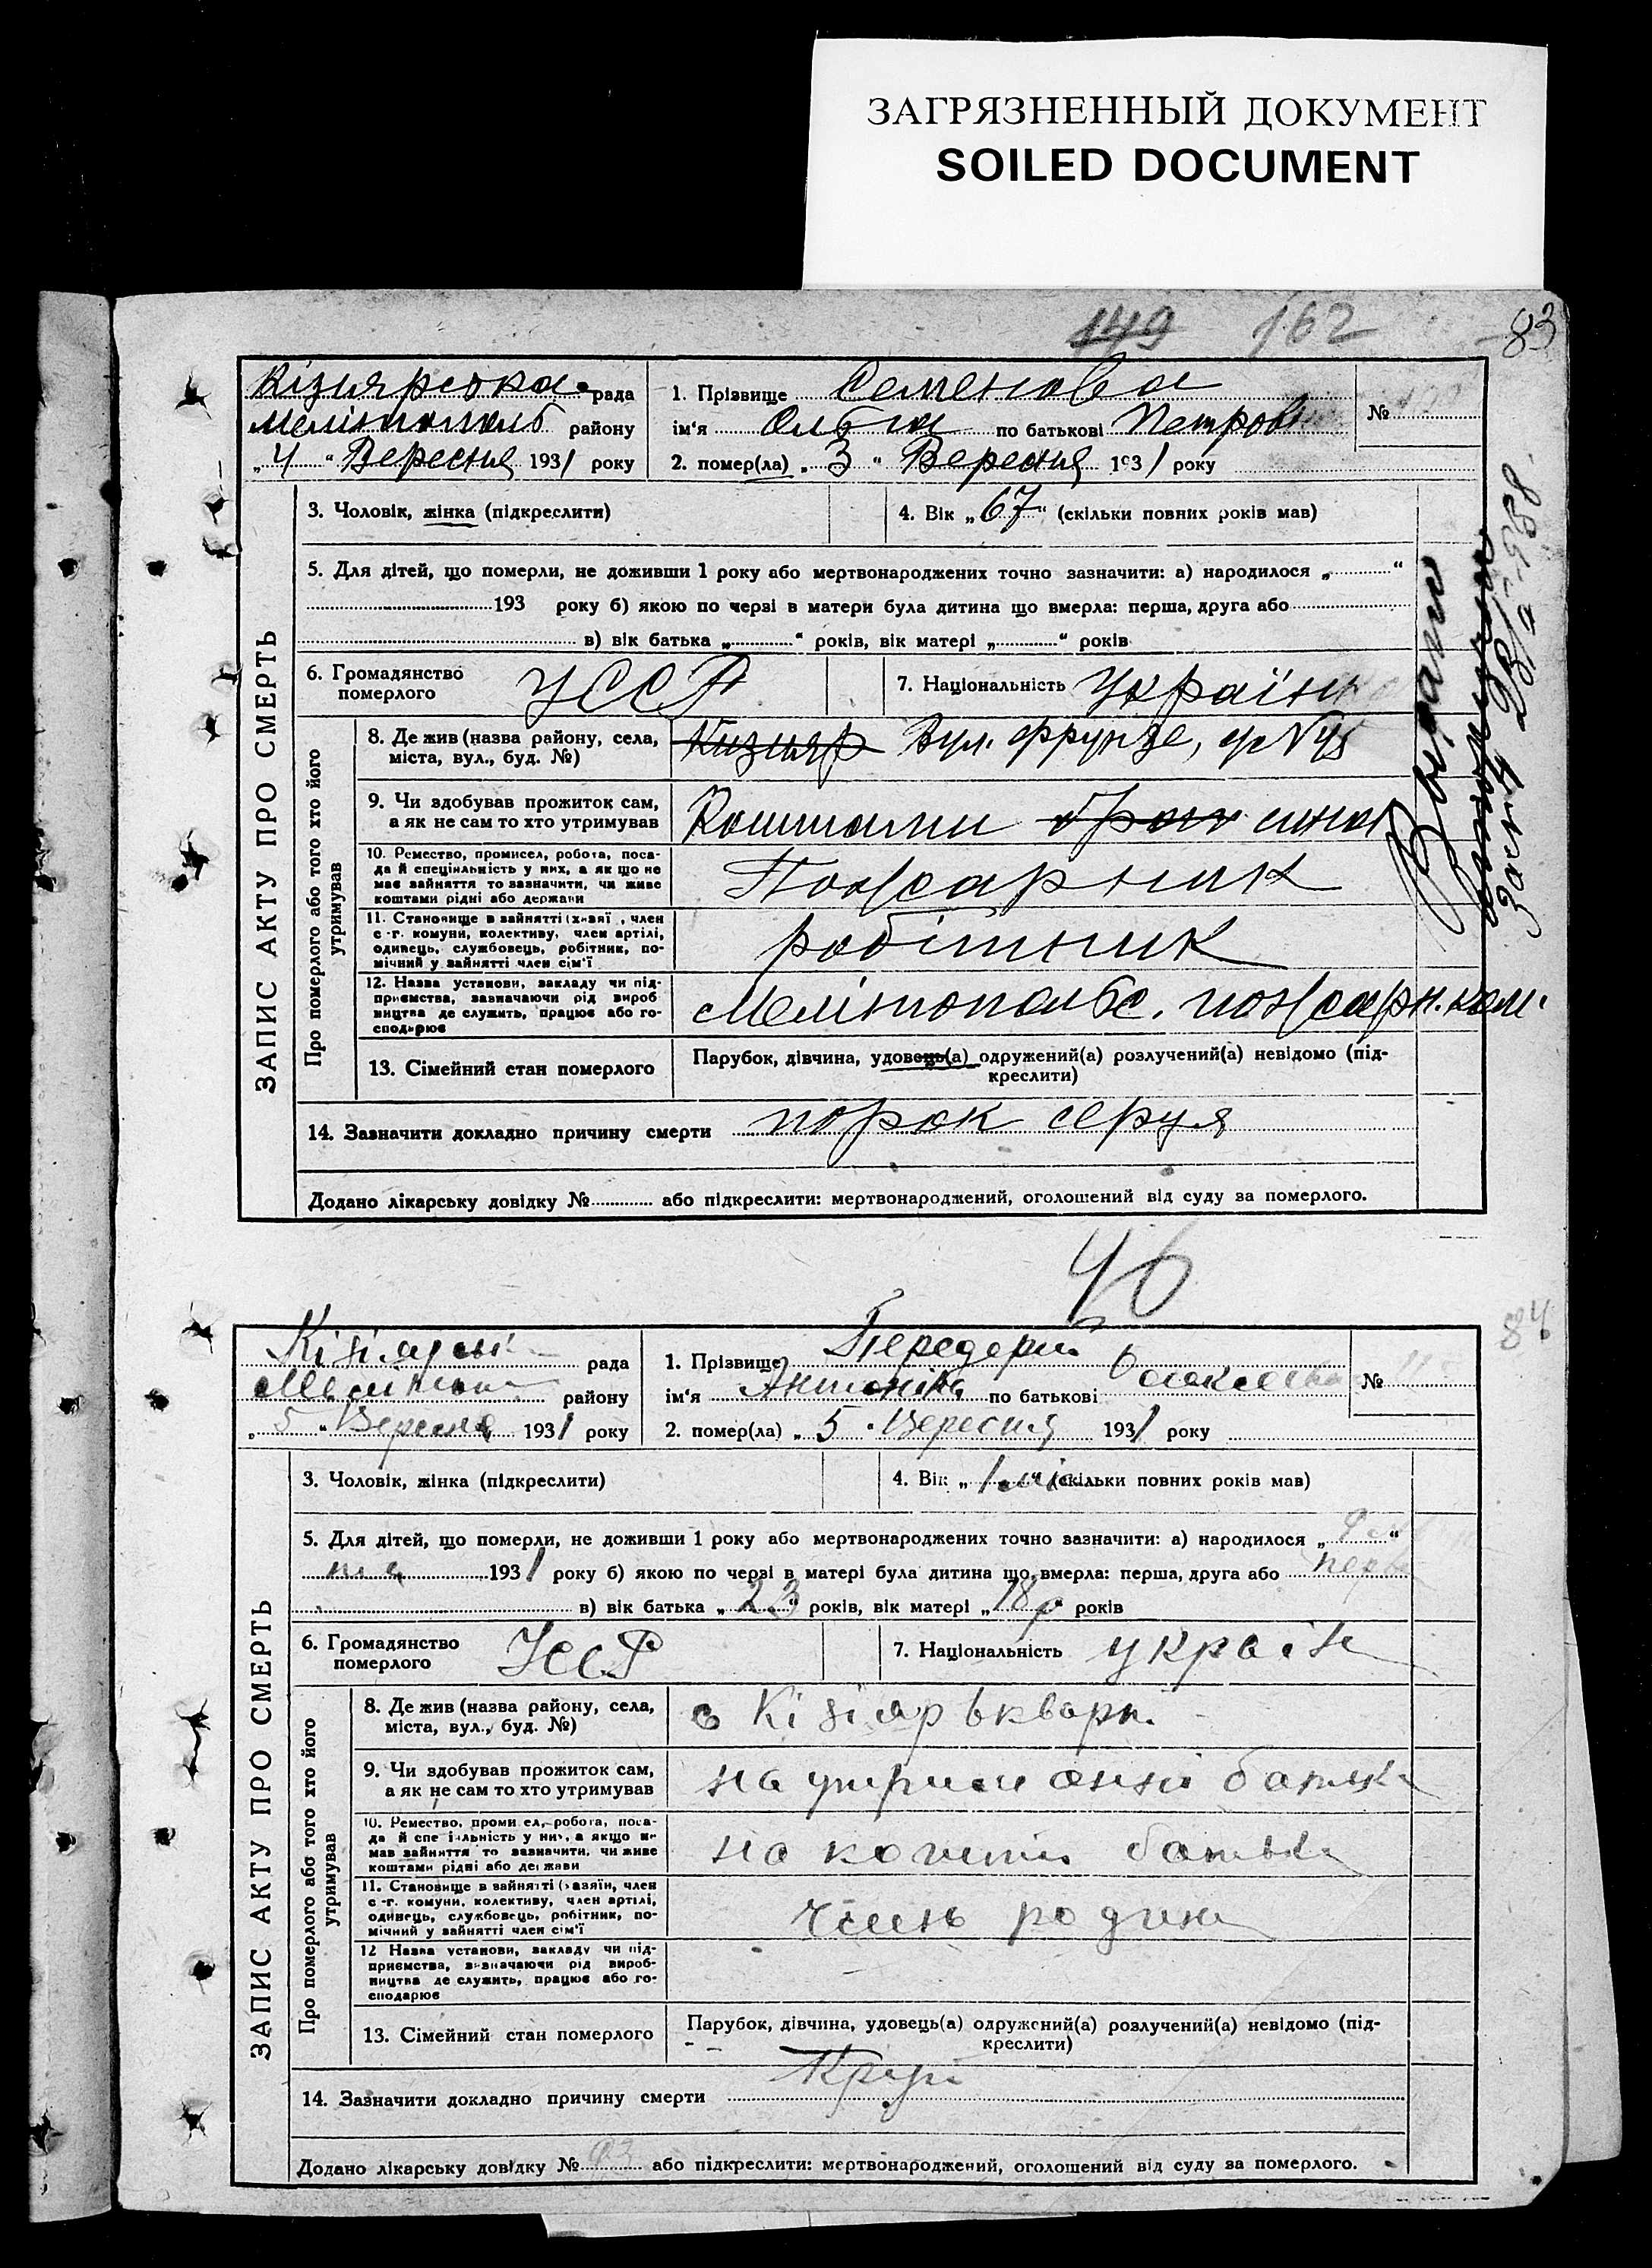 ЗАГРЯЗНЕННЫЙ ДОКУМЕНТ
SOILED DOCUMENT
149 162 83
Кізиярська рада
Мелітополь району
„4“ Вересня 1931 року
1. Прізвище Семенова
ім'я Ольга по батькові Петров
№
2. помер(ла) „3“ Вересня 1931 року
ЗАПИС АКТУ ПРО СМЕРТЬ
3. Чоловік, жінка (підкреслити)
4. Вік „67“ (скільки повних років мав)
5. Для дітей, що померли, не доживши 1 року або мертвонароджених точно зазначити: а) народилося „ “
193 року б) якою по черзі в матери була дитина що вмерла: перша, друга або
в) вік батька „ “ років, вік матері „ “ років
6. Громадянство померлого УССР
7. Національність Україн
Про померлого або того хто його утримував
8. Де жив (назва району, села,
міста, вул., буд. №)
Кизияр Вул. Фрунзе,
9. Чи здобував прожиток сам,
а як не сам то хто утримував
Коштами брат сина
10. Ремество, промисел, робота, поса-
да й спеціяльність у них, а як що не
має зайняття то зазначити, чи живе
коштами рідні або держави
Пожарник
11. Становище в зайнятті (хазяї, член
с-г. комуни, колективу, член артілі,
одинець, службовець, робітник, по-
мічний у зайнятті член сім'ї
робітник
12. Назва установи, закладу чи під-
приємства, зазначаючи рід вироб
ництва де служить, працює або го-
сподарює
Мелітопольс. пожарн. ком.
13. Сімейний стан померлого
Парубок, дівчина, удовець(а) одружений(а) розлучений(а) невідомо (під-
креслити)
14. Зазначити докладно причину смерти порок серця
Додано лікарську довідку № або підкреслити: мертвонароджений, оголошений від суду за померлого.
46
84
рада
району
„5“ Вересня 1931 року
1. Прізвище Передерий
ім'я Антоніна по батькові
№
2. помер(ла) „5“ Вересня 1931 року
ЗАПИС АКТУ ПРО СМЕРТЬ
3. Чоловік, жінка (підкреслити)
4. Вік „1 “ (скільки повних років мав)
5. Для дітей, що померли, не доживши 1 року або мертвонароджених точно зазначити: а) народилося „ “
1931 року б) якою по черзі в матері була дитина що вмерла: перша, друга або
в) вік батька „23“ років, вік матері „18“ років
6. Громадянство померлого УССР
7. Національність україн
Про померлого або того хто його утримував
8. Де жив (назва району, села,
міста, вул., буд. №)
с Кізіяр
9. Чи здобував прожиток сам,
а як не сам то хто утримував
на утриманні батька
10. Ремество, промисел, робота, поса-
да й спеціяльність у них, а якщо не
мав зайняття то зазначити, чи живе
коштами рідні або держави
на кошти батька
11. Становище в зайнятті (хазяїн, член
с-г. комуни, колективу, член артілі,
одинець, службовець, робітник, по-
мічний у зайнятті член сім'ї
член родини
12 Назва установи, закладу чи під-
приємства, зазначаючи рід вироб-
ництва де служить, працює або го-
сподарює
13. Сімейний стан померлого
Парубок, дівчина, удовець(а) одружений(а) розлучений(а) невідомо (під-
креслити)
14. Зазначити докладно причину смерти
Додано лікарську довідку № або підкреслити: мертвонароджений, оголошений від суду за померлого.